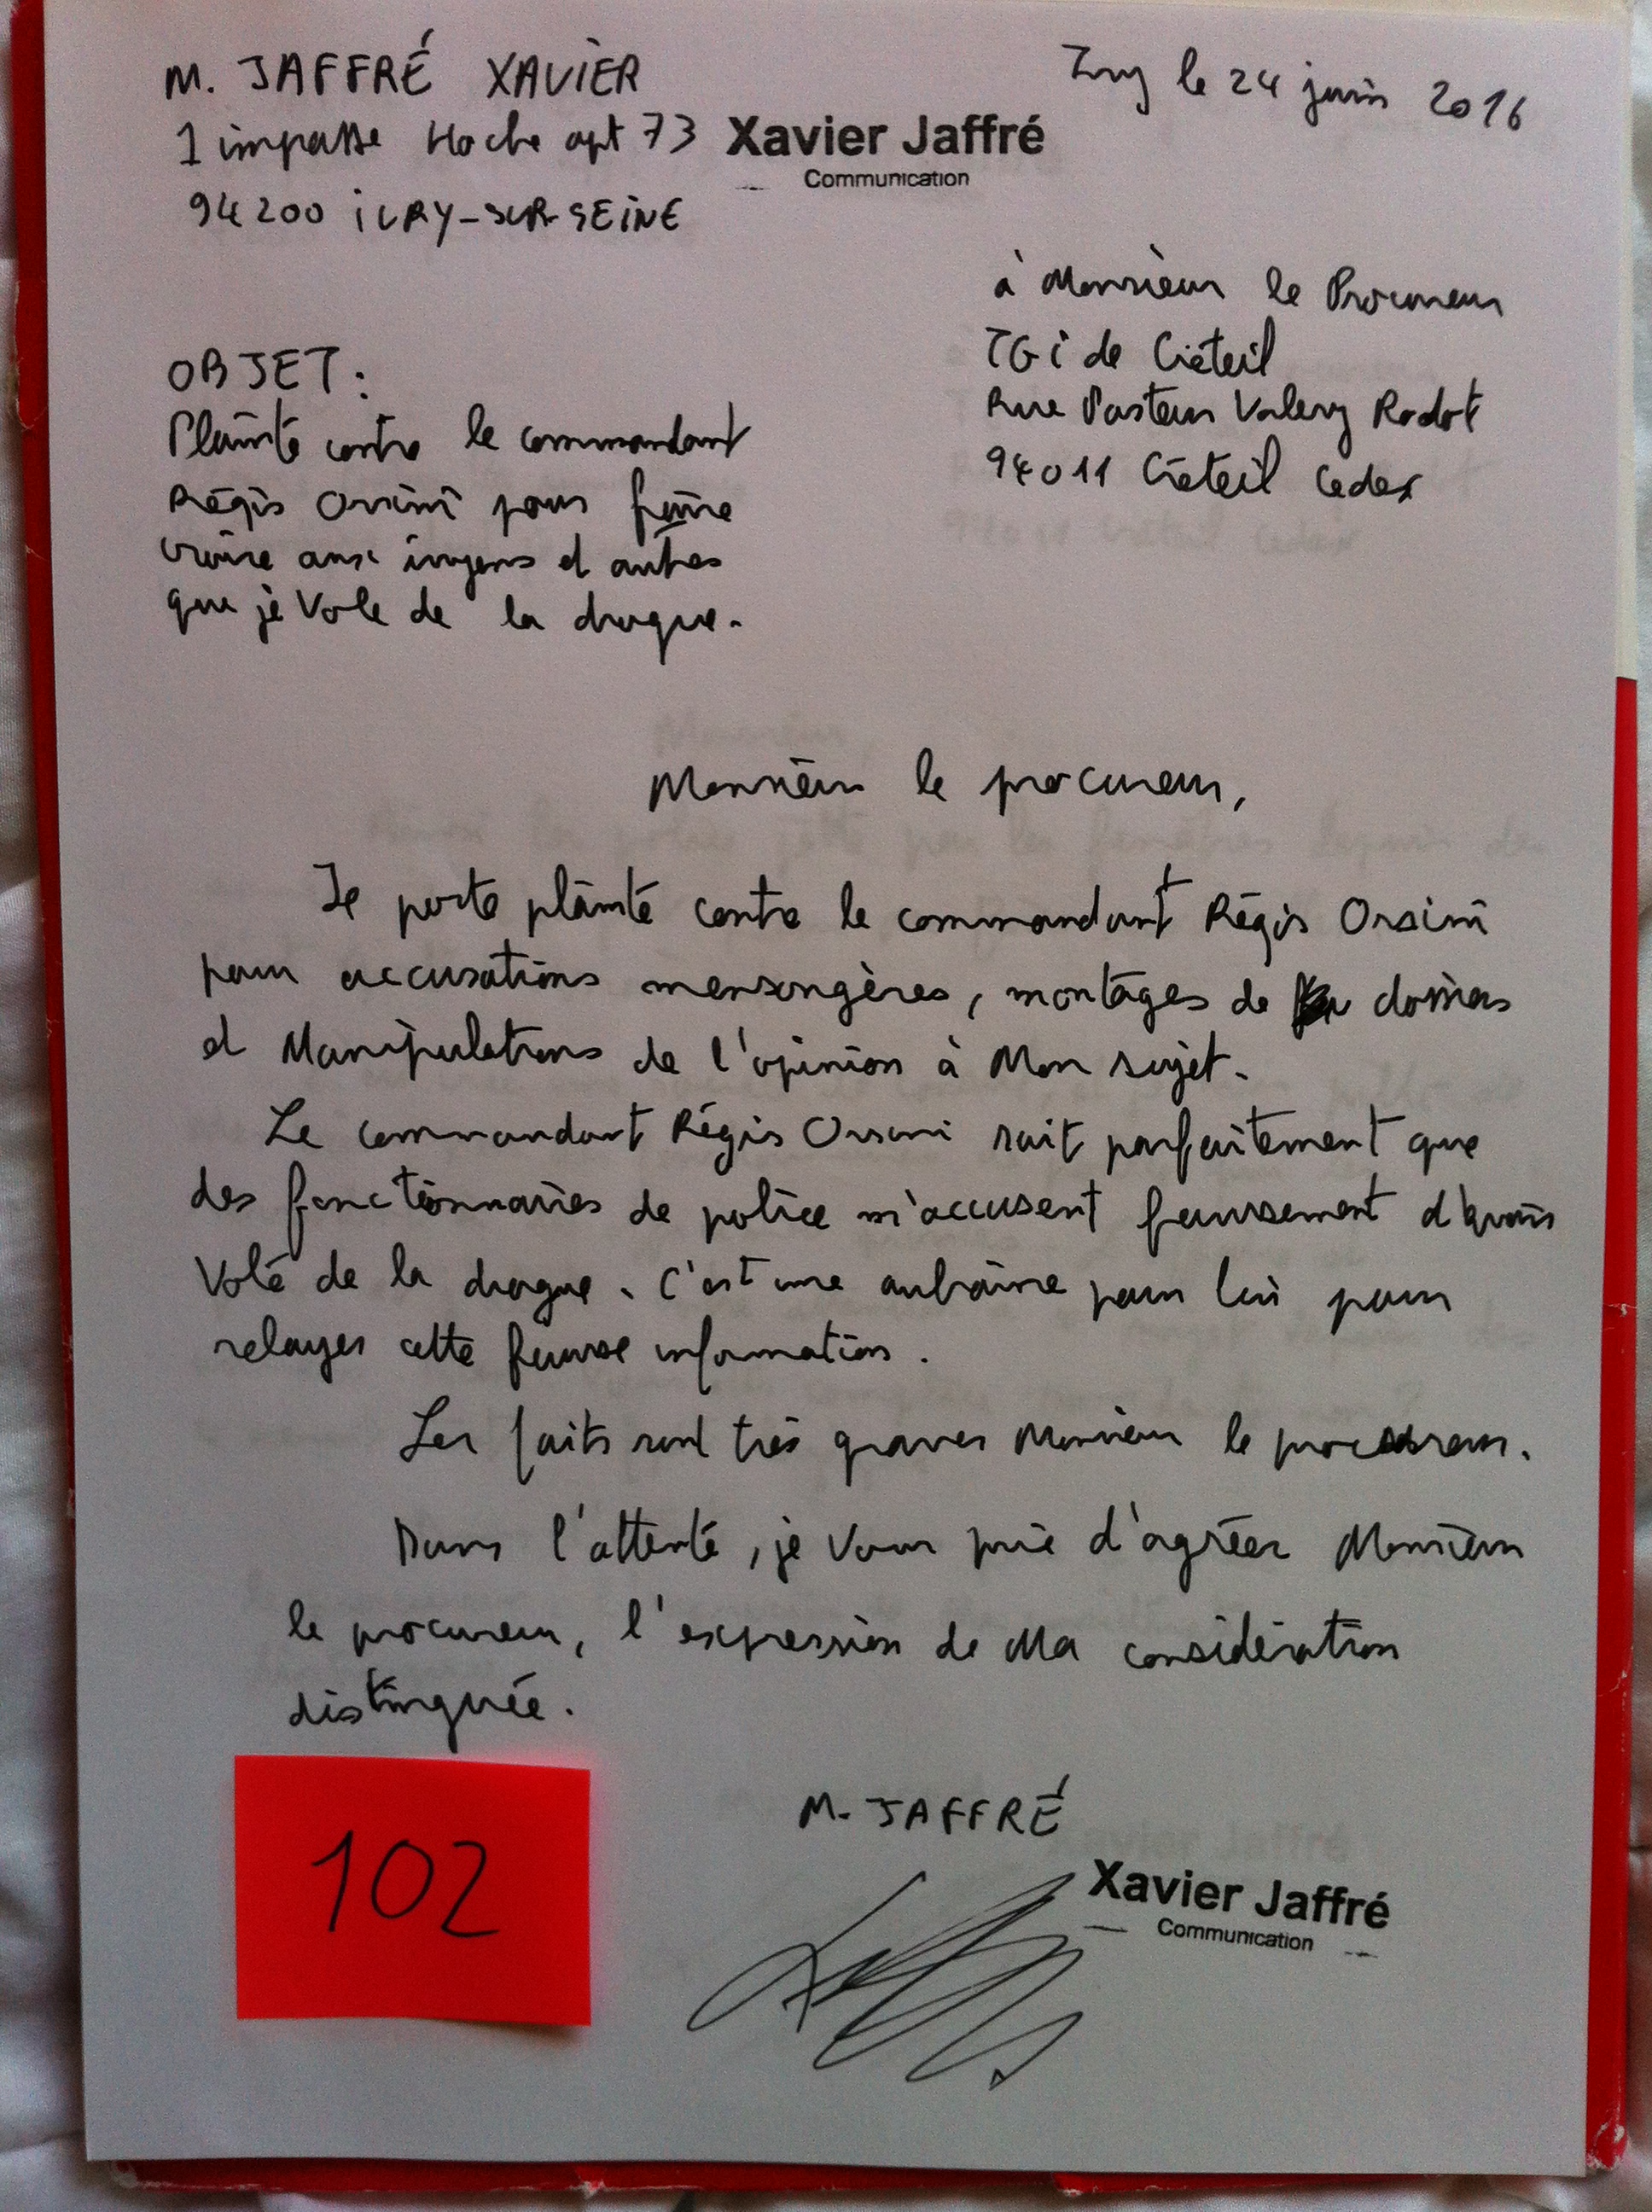 M. JAFFRÉ XAVIER
Ivry le 24 juin 2016
1 impasse Hoche apt 73
Xavier Jaffré
Communication
94200 iVRY-SUR-SEiNE
à Monsieur le Procureur
TGi de Créteil
Rue Pasteur Valery Radot
94011 Créteil Cedex
OBJET :
Plainte contre le commandant
Régis Orsini pour faire
croire aux ivryens et autres
que je vole de la drogue.
Monsieur le procureur,
Je porte plainte contre le commandant Régis Orsini
pour accusations mensongères, montages de dossiers
et Manipulations de l'opinion à Mon sujet.
Le commandant Régis Orsini sait parfaitement que
des fonctionnaires de police m'accusent faussement d'avoir
Volé de la drogue. C'est une aubaine pour lui pour
relayer cette fausse information.
Les faits sont très graves Monsieur le procureur.
Dans l'attente, je vous prie d'agréer Monsieur
le procureur, l'expression de Ma considération
distinguée.
102
M. JAFFRÉ
Xavier Jaffré
Communication